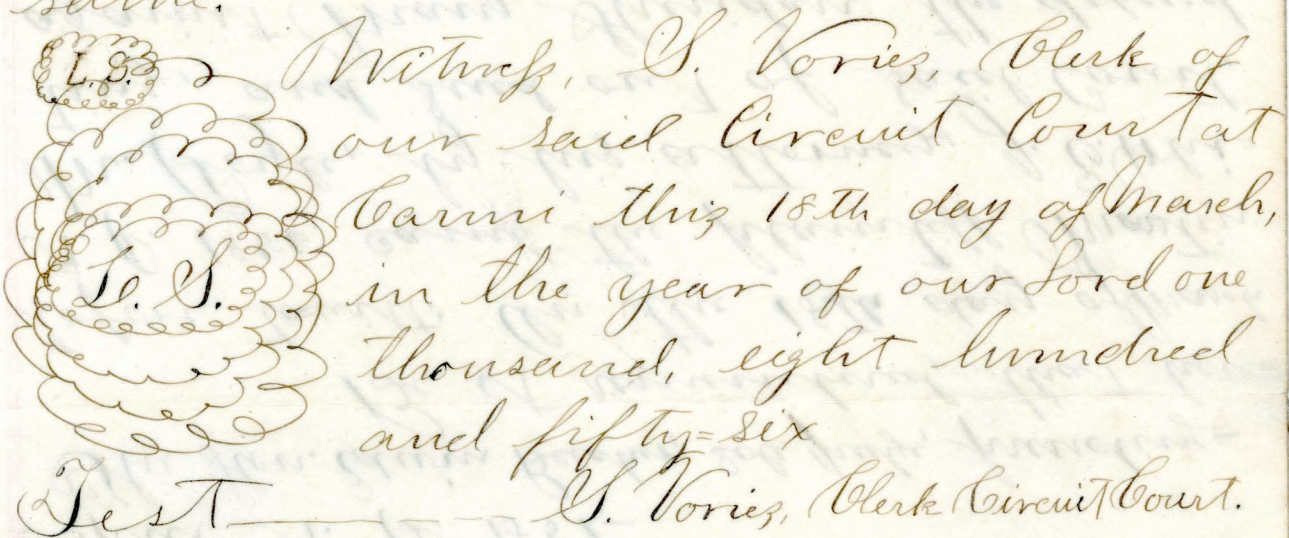 same.
L. S. Witness, S. Vories, Clerk of
our said Circuit Court at
Carmi this 18th day of March,
L. S. in the year of our Lord one
thousand, eight hundred
and fifty=six
Test S. Vories, Clerk Circuit Court.